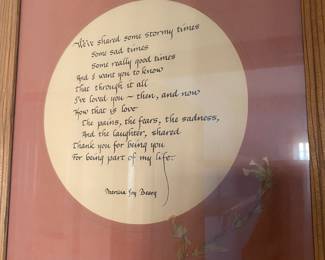 We've shared some stormy times
Some sad times
Some really good times
And I want you to know
That through it all
I've loved you — then, and now
Now that is love
The pains, the fears, the sadness,
And the laughter, shared
Thank you for being you
For being part of my life.
Joy